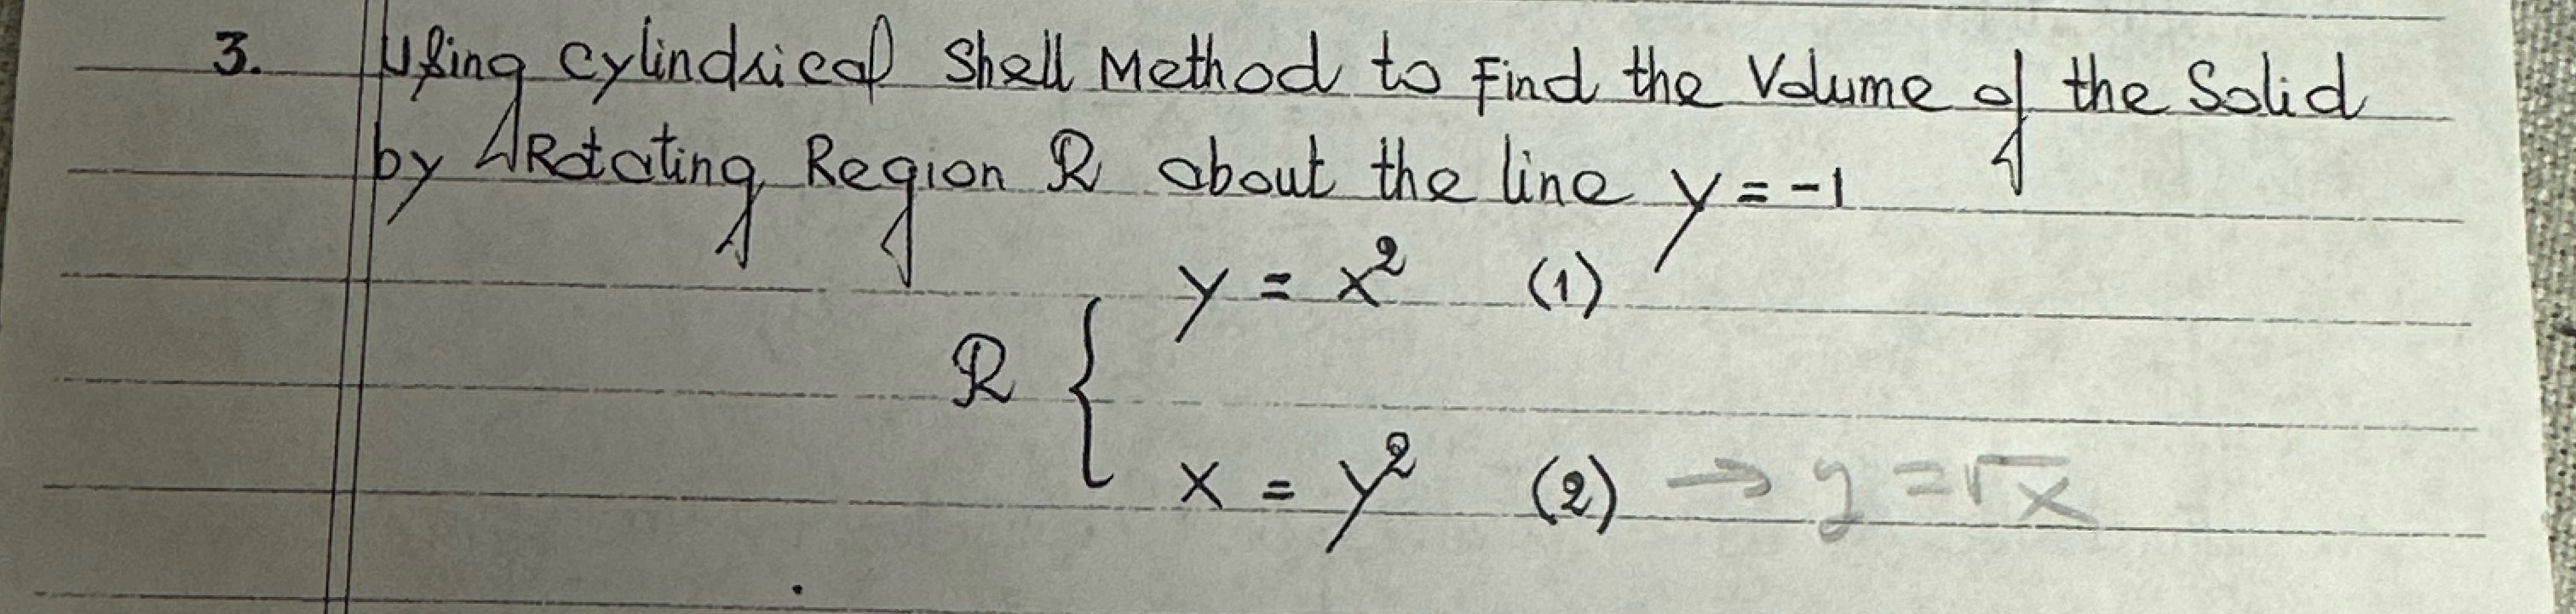 3. Using Cylindrical Shell Method to Find the Volume of the Solid
by Rotating Region R about the line y = -1
y = x² (1)
R {
x = y² (2) → y = √x